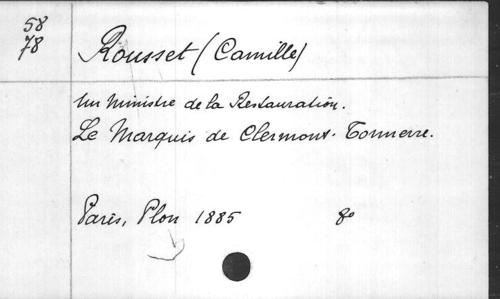 58
78
Rousset (Camille)
Un ministre de la Restauration.
Le Marquis de Clermont-Tonnerre.
Paris, Plon 1885 8o